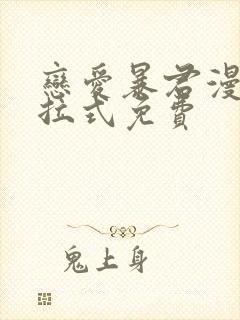 戀愛暴君漫
拉式免費
鬼上身